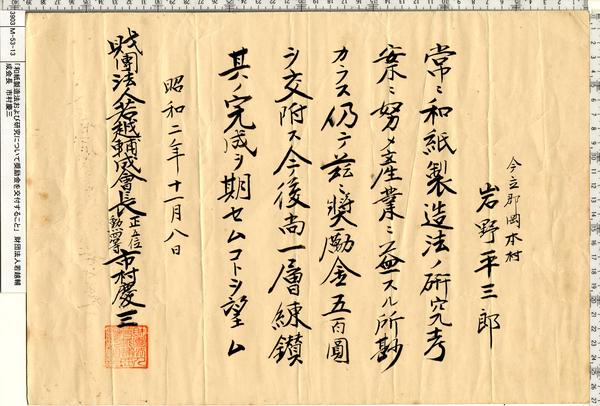 今立郡岡本村
岩野平三郎
常ニ和紙製造法ノ研究考
案ニ努メ産業ニ益スル所尠
カラス仍テ茲ニ奨励金五百圓
ヲ交附ス今後尚一層練鑚
其ノ完成ヲ期セムコトヲ望ム
昭和二年十一月八日
財團法人若越輔成會長正五位勲四等市村慶三
3903 M-53-13
「和紙製造法および研究について奨励金を交付すること」 財団法人若越輔
成会長 市村慶三